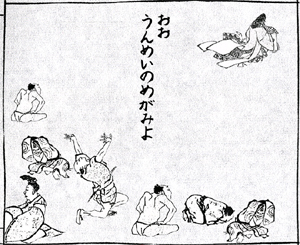 おお
うんめいのめがみよ